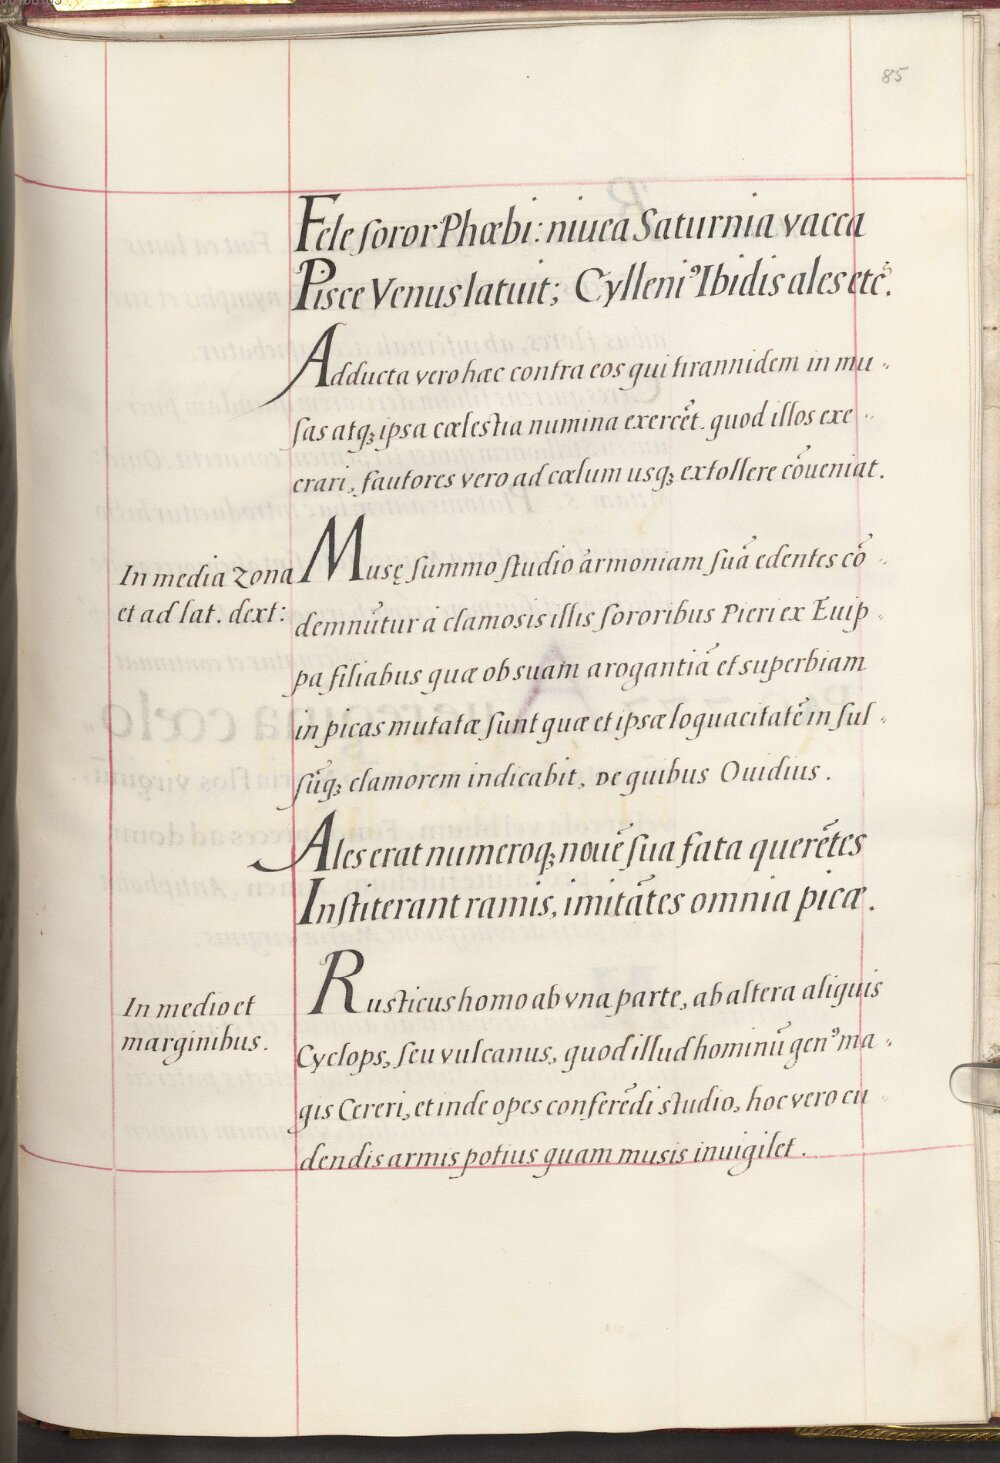 85
Fele soror Phœbi: niuea Saturnia vacca
Pisce Venus latuit; Cylleniꝰ Ibidis ales etc̃.
Adducta vero hæc contra eos qui tirannidem in mu-
sas atqꝫ ipsa cælestia numina exercẽt. quod illos exe-
crari, fautores vero ad cælum usqꝫ extollere cõueniat.
In media zona
et ad lat. dext:
Musę summo studio armoniam suã edentes cõ-
demnũtur à clamosis illis sororibus Pieri ex Euip-
pa filiabus quæ ob suam arogantiã et superbiam
in picas mutatæ sunt quæ et ipsæ loquacitatẽ in sul-
sũqꝫ clamorem indicabit, De quibus Ouidius.
Ales erat numeroqꝫ nouẽ sua fata querẽtes
Institerant ramis, imitãtes omnia picæ.
In medio et
marginibus.
Rusticus homo ab vna parte, ab altera aliquis
Cyclops, seu vulcanus, quod illud hominũ genꝰ ma-
gis Cereri, et inde opes conferẽdi studio, hoc vero cu-
dendis armis potius quam musis inuigilet.